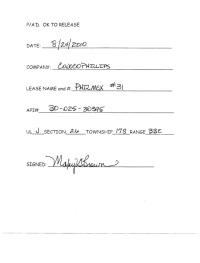 P/A'D. OK TO RELEASE
DATE: 8/24/2010
COMPANY: CONOCOPHILLIPS
LEASE NAME and #: PHILMEX #31
API#: 30-025-30395
UL J SECTION 26 TOWNSHIP 17S RANGE 33E
SIGNED: